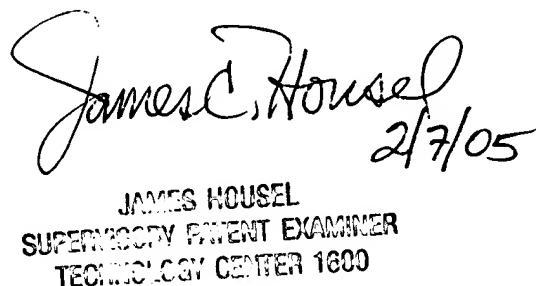 James C. Housel
2/7/05
JAMES HOUSEL
SUPERVISORY PATENT EXAMINER
TECHNOLOGY CENTER 1600